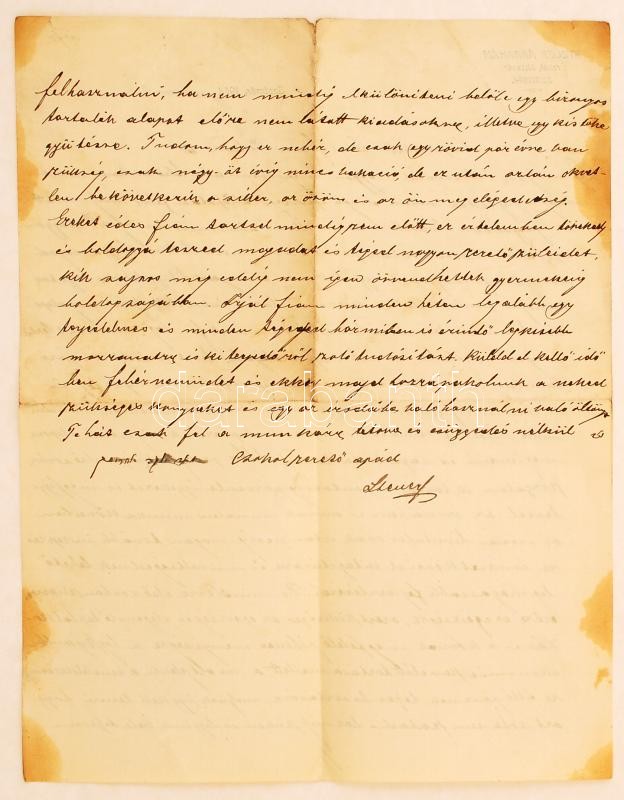 felhasználni, ha nem mindig elkülöníteni belőle egy bizonyos
tartalék alapot előre nem látott kiadásokra, illetve egy kis tőke
gyűjtésre. Tudom, hogy ez nehéz, de csak egy rövid pár évre van
szükség, csak négy-öt évig nincs vakáció, de ez után aztán okvet-
len bekövetkezik a siker, az öröm és az ön megelégedettség.
Ezeket édes fiam tartsd mindig szem előtt, ez értelemben törekedj
és boldoggá teszed magadat és téged nagyon szerető szüleidet,
kik sajnos még eddig nem igen örvendhettek gyermekeik
boldogságában. Írjál fiam minden héten legalább egy
terjedelmes és minden téged bármiben is érintő legkisebb
mozzanatra is kiterjedőről szóló tudósítást. Küldd el kellő idő-
ben fehérneműidet és ekkor majd hozzá rakolunk a neked
szükséges könyveket és egy az irodába való használni való öltönyt
Tehát csak fel a munkára és csüggedés nélkül
Csókol szerető apád
darabanth